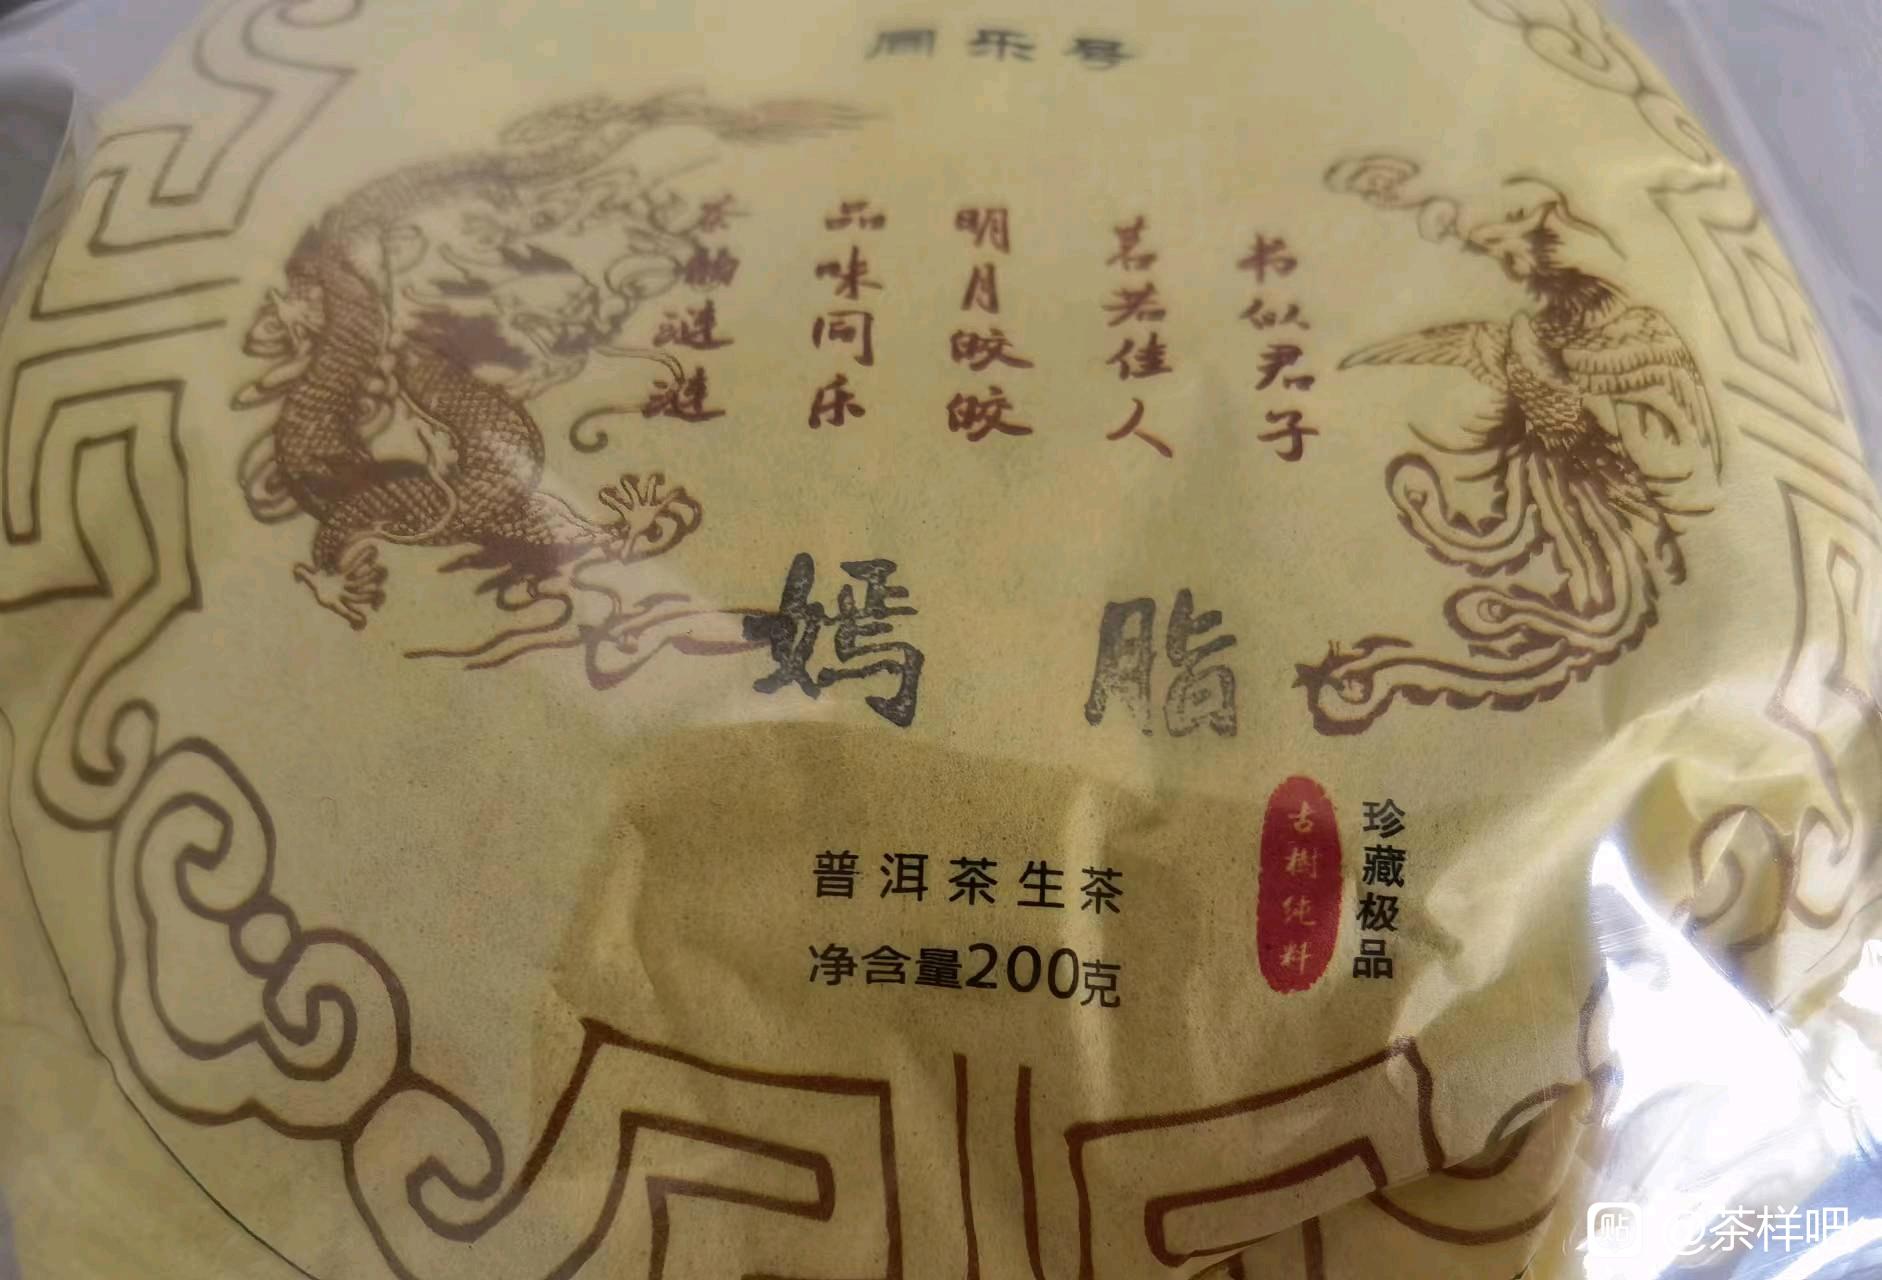 同乐号
书似君子
茗若佳人
明月皎皎
品味同乐
茶韵涟涟
嫣脂
普洱茶生茶
净含量200克
古樹纯料
珍藏极品
贴 @茶样吧